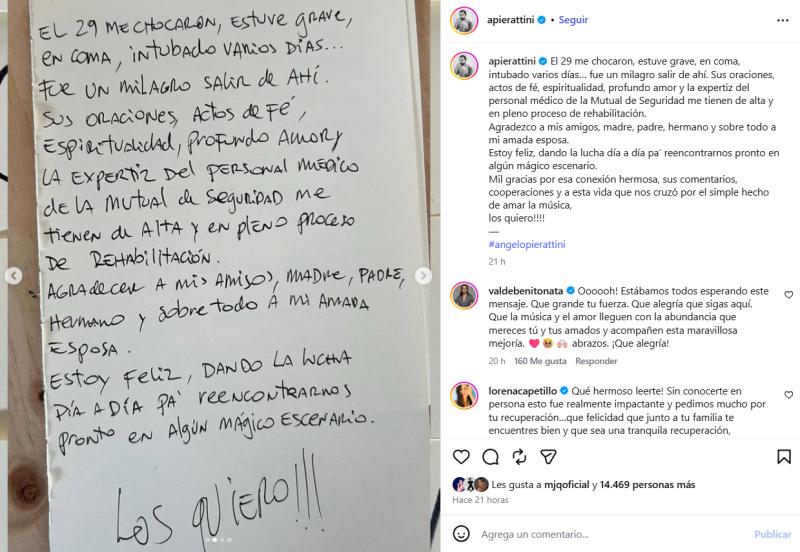 EL 29 ME CHOCARON, ESTUVE GRAVE,
EN COMA, INTUBADO VARIOS DÍAS...
FUE UN MILAGRO SALIR DE AHÍ.
SUS ORACIONES, ACTOS DE FÉ,
ESPIRITUALIDAD, PROFUNDO AMOR Y
LA EXPERTIZ DEL PERSONAL MÉDICO
DE LA MUTUAL DE SEGURIDAD ME
TIENEN DE ALTA Y EN PLENO PROCESO
DE REHABILITACIÓN.
AGRADECER A MIS AMIGOS, MADRE, PADRE,
HERMANO Y SOBRE TODO A MI AMADA
ESPOSA.
ESTOY FELIZ, DANDO LA LUCHA
DÍA A DÍA PA' REENCONTRARNOS
PRONTO EN ALGÚN MÁGICO ESCENARIO.
LOS QUIERO!!!
apierattini • Seguir
apierattini El 29 me chocaron, estuve grave, en coma,
intubado varios días... fue un milagro salir de ahí. Sus oraciones,
actos de fé, espiritualidad, profundo amor y la expertiz del
personal médico de la Mutual de Seguridad me tienen de alta y
en pleno proceso de rehabilitación.
Agradezco a mis amigos, madre, padre, hermano y sobre todo a
mi amada esposa.
Estoy feliz, dando la lucha día a día pa' reencontrarnos pronto en
algún mágico escenario.
Mil gracias por esa conexión hermosa, sus comentarios,
cooperaciones y a esta vida que nos cruzó por el simple hecho
de amar la música,
los quiero!!!!
—
#angelopierattini
21 h
valdebenitonata Oooooh! Estábamos todos esperando este
mensaje. Que grande tu fuerza. Que alegría que sigas aquí.
Que la música y el amor lleguen con la abundancia que
mereces tú y tus amados y acompañen esta maravillosa
mejoría. ❤️🥹🙌🏻 abrazos. ¡Que alegría!
20 h 160 Me gusta Responder
lorenacapetillo Qué hermoso leerte! Sin conocerte en
persona esto fue realmente impactante y pedimos mucho por
tu recuperación...que felicidad que junto a tu familia te
encuentres bien y que sea una tranquila recuperación,
Les gusta a mjqoficial y 14.469 personas más
Hace 21 horas
Agrega un comentario...
Publicar